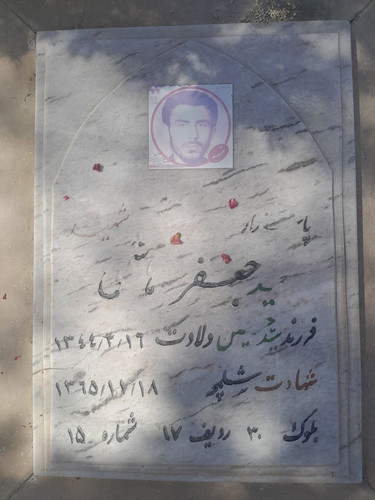 پاسدار شهید
سید جعفر
فرزند سید یونس ولادت ۱۳۴۴/۲/۱۶
شهادت شلمچه ۱۳۶۵/۱۱/۱۸
بلوک ۳۰ ردیف ۱۷ شماره ۱۵